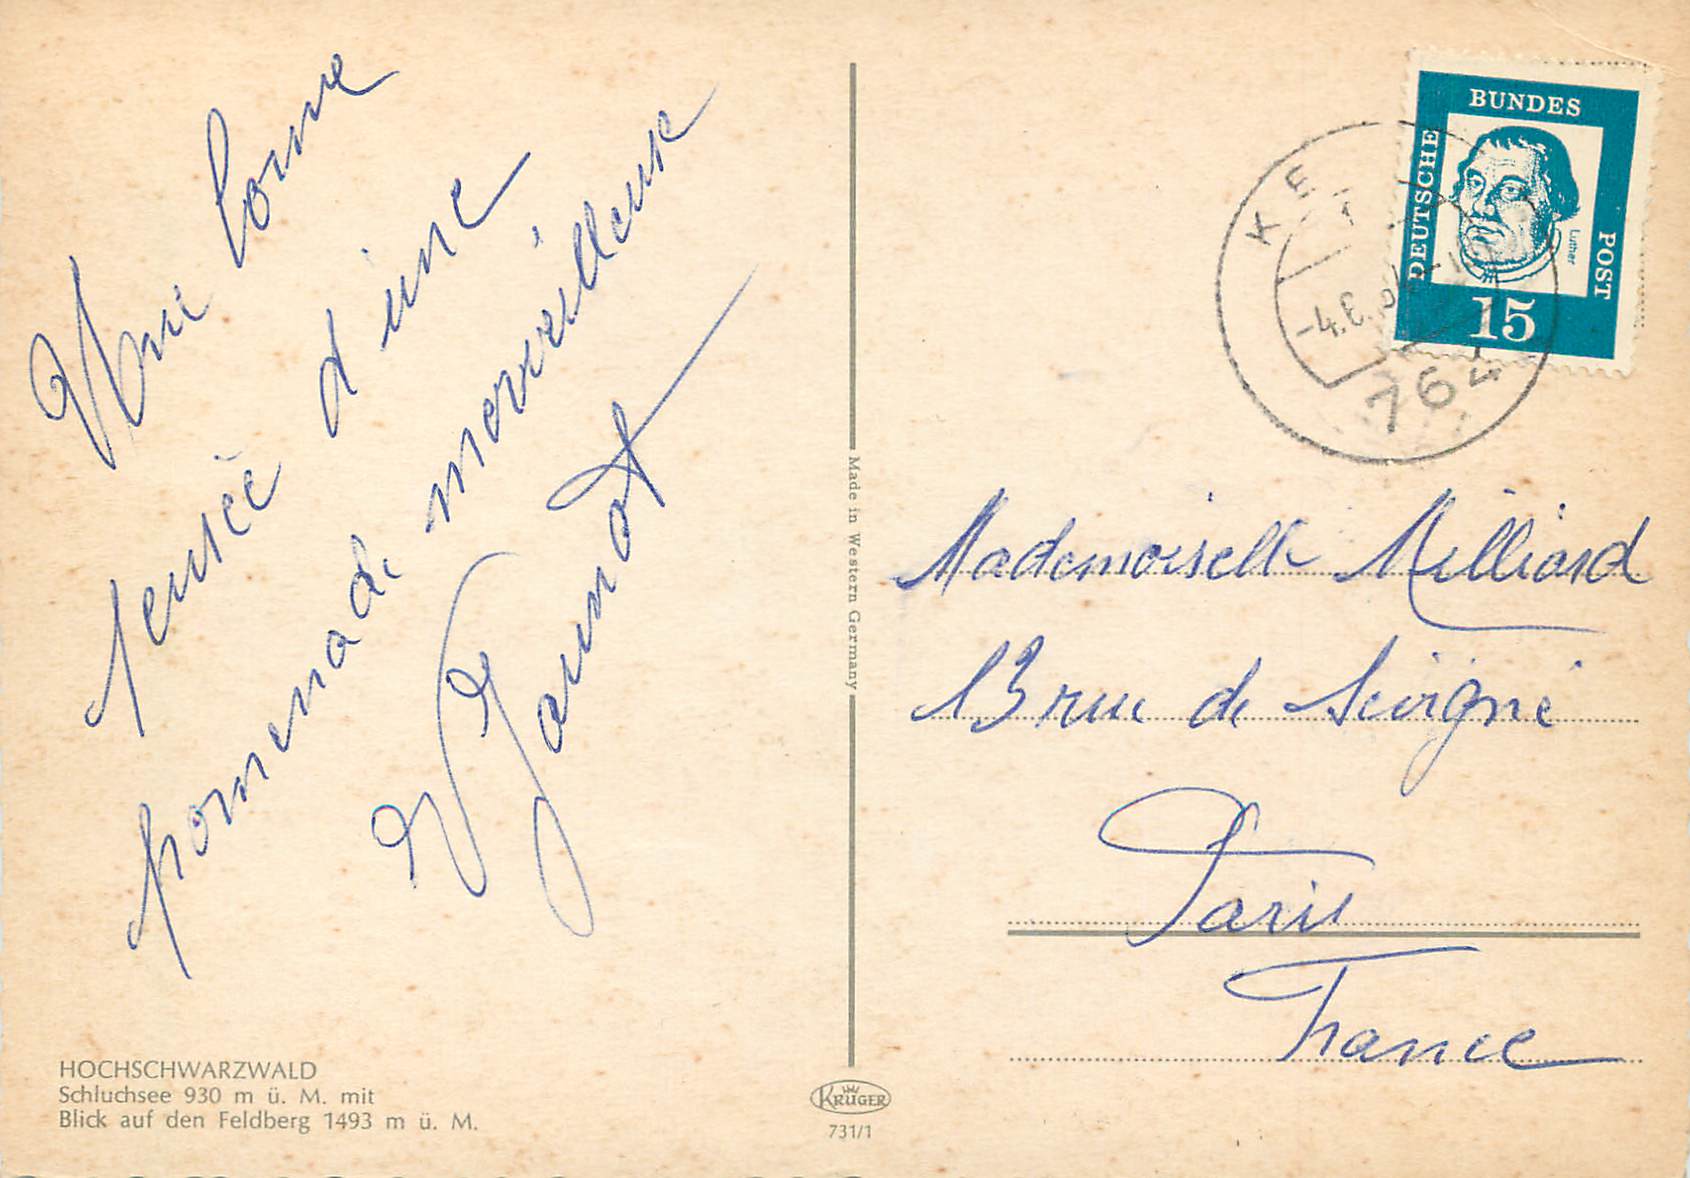 Une bonne
pensée d'une
promenade merveilleuse
HOCHSCHWARZWALD
Schluchsee 930 m ü. M. mit
Blick auf den Feldberg 1493 m ü. M.
Made in Western Germany
KRÜGER
731/1
DEUTSCHE BUNDES POST
Luther
15
KE
-4.
764
Mademoiselle Milliard
13 rue de Sévigné
Paris
France